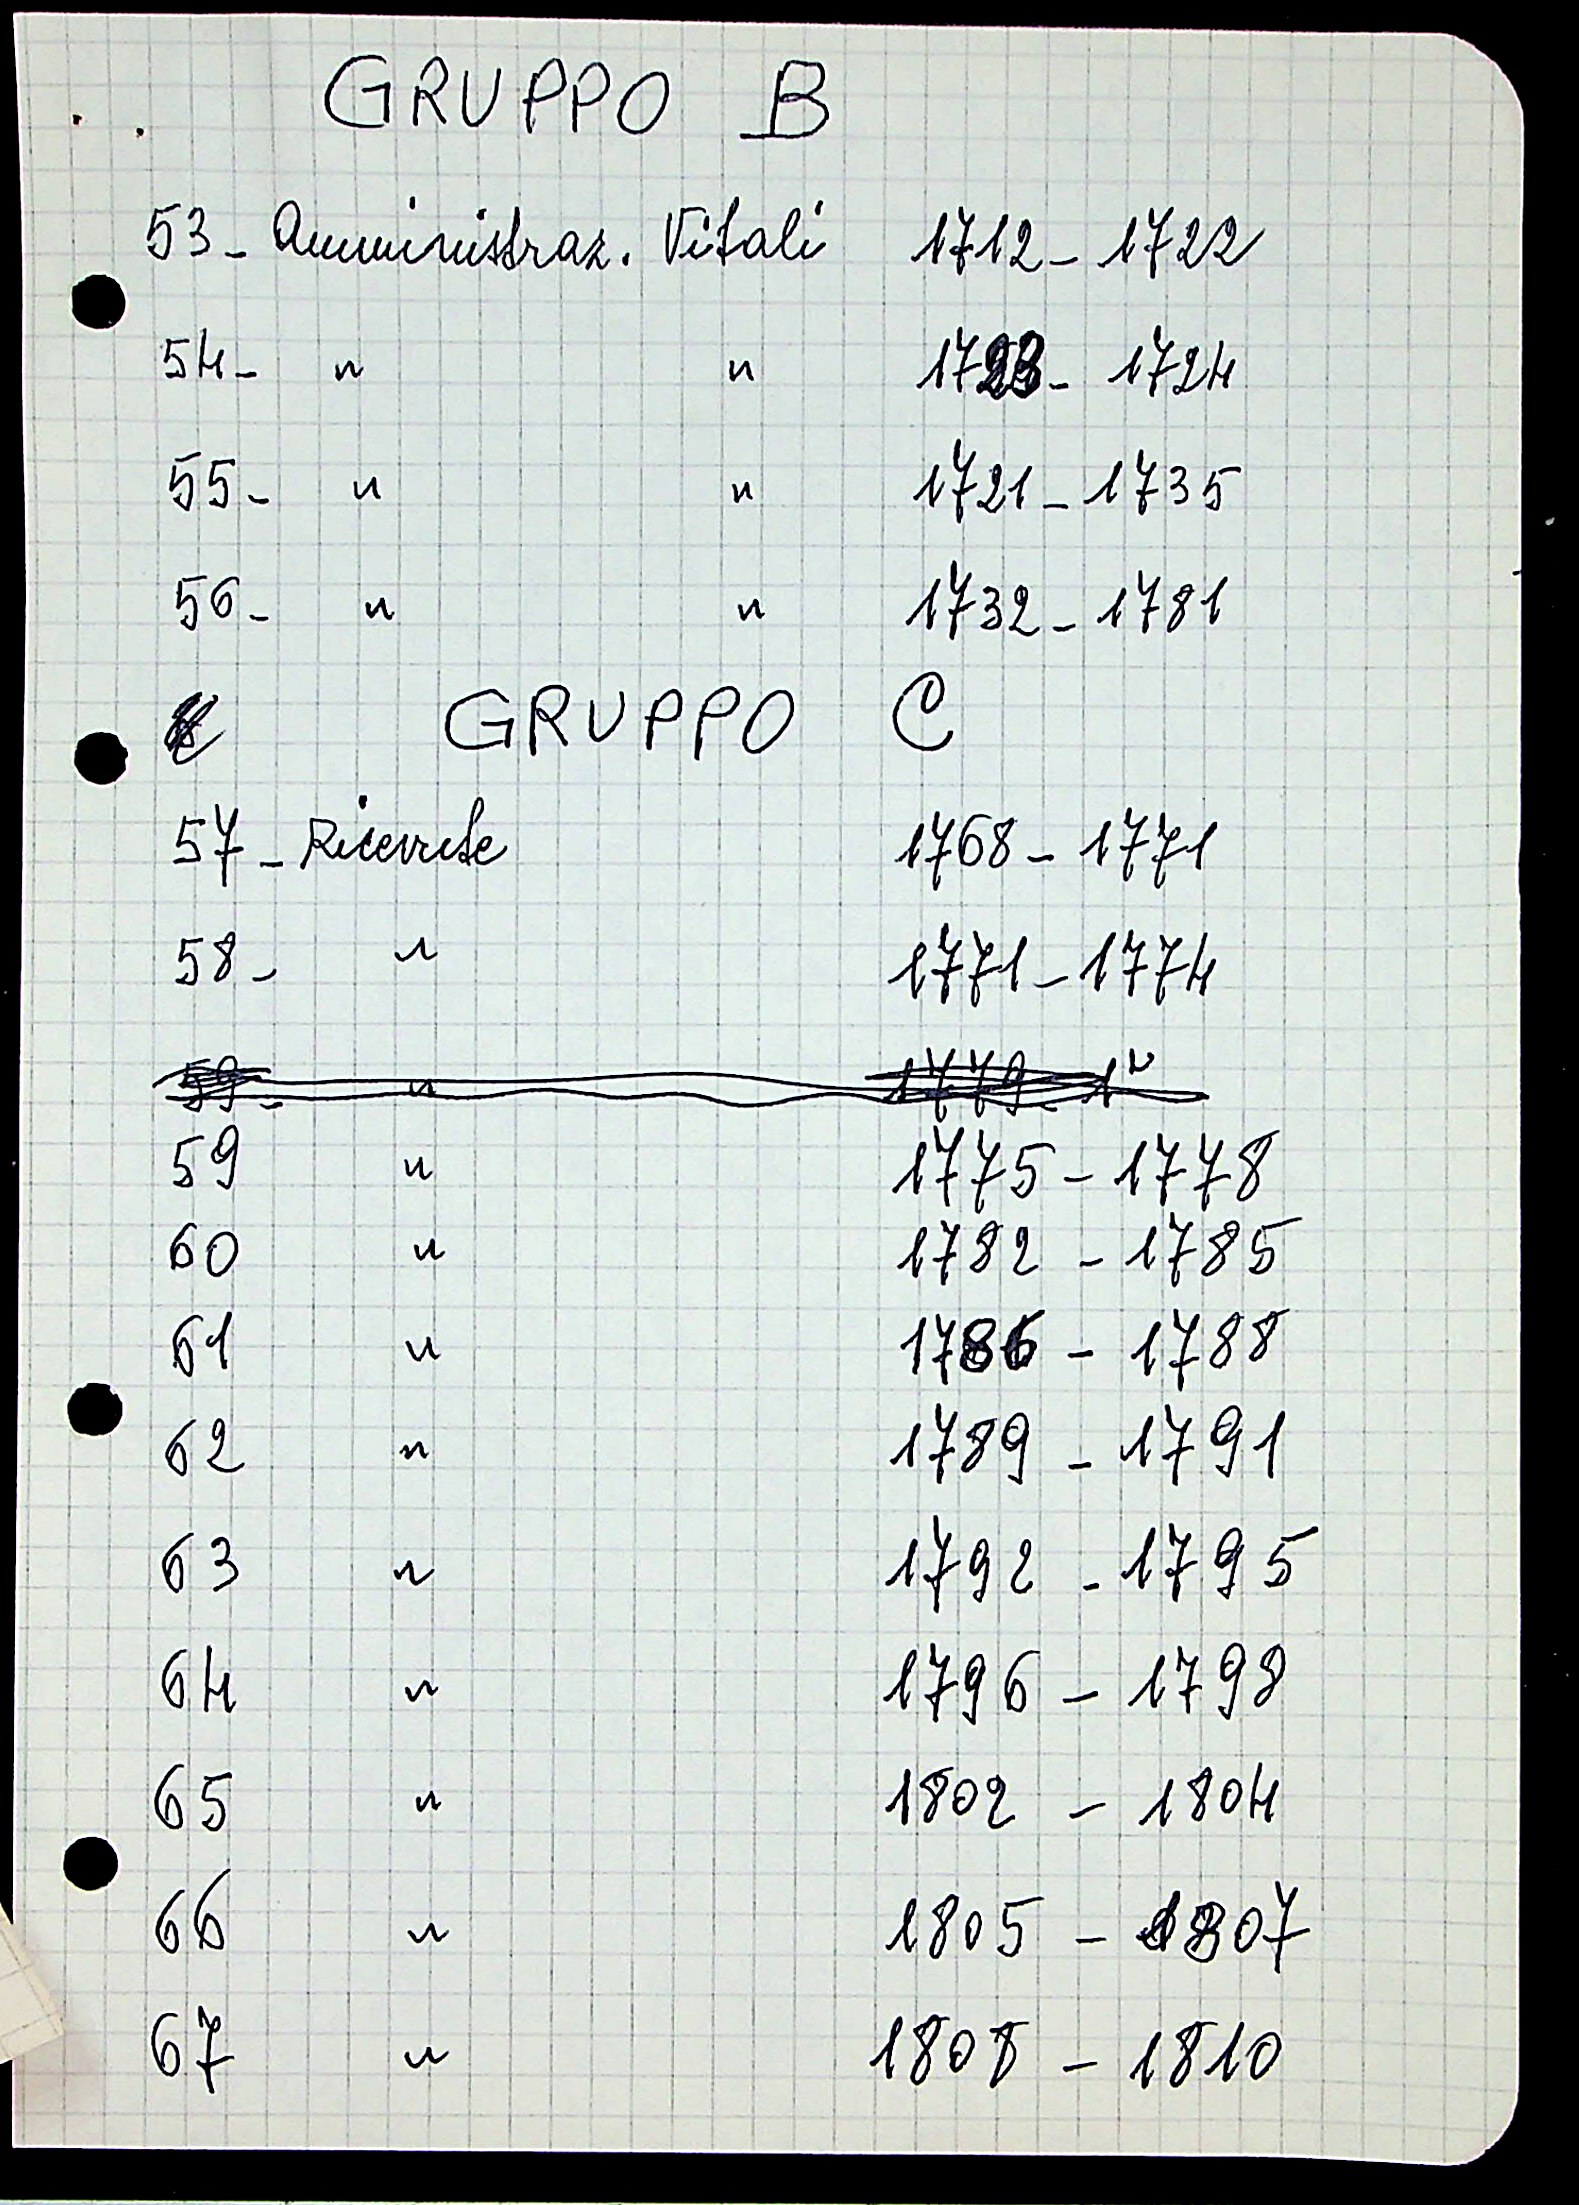 GRUPPO B
53- Amministraz. Vitali 1712-1722
54- " " 1723- 1724
55- " " 1721-1735
56- " " 1732-1781
GRUPPO C
57- Ricevute 1768-1771
58- " 1771-1774
59- " 1779- 17
59 " 1775-1778
60 " 1782 - 1785
61 " 1786 - 1788
62 " 1789 - 1791
63 " 1792 - 1795
64 " 1796 - 1798
65 " 1802 - 1804
66 " 1805 - 1807
67 " 1808 - 1810